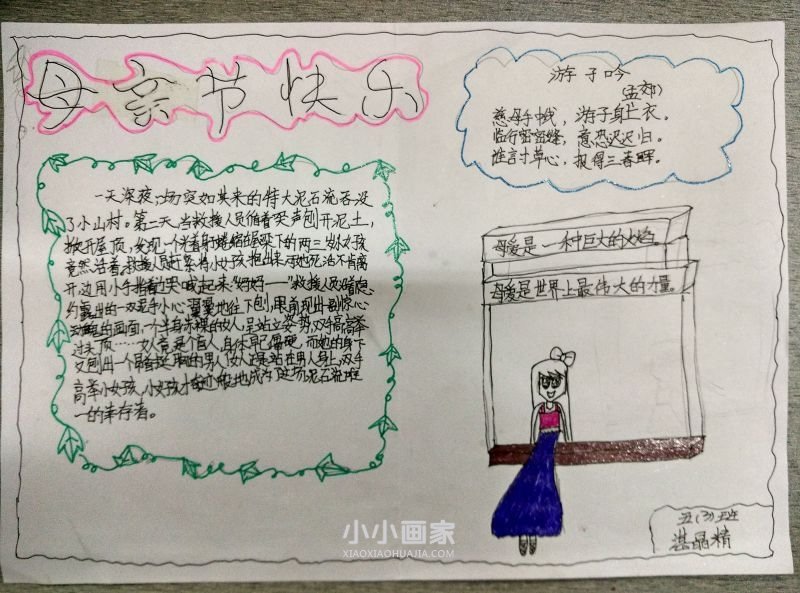 母亲节快乐
游子吟
(孟郊)
慈母手中线，游子身上衣。
临行密密缝，意恐迟迟归。
谁言寸草心，报得三春晖。
一天深夜，一场突如其来的特大泥石流吞没
了小山村。第二天，当救援人员循着哭声刨开泥土，
掀开屋顶，发现一个光着身子蜷缩在屋梁下的两三岁小女孩
竟然活着。救援人员赶紧将小女孩抱出来，可她死活不肯离
开，边用小手指着边哭喊起来"妈妈——"救援人员
的一双泥手小心翼翼地往下刨，眼前现出一副惊心
动魄的画面：一个半身赤裸的女人，呈站立姿势，双手高高举
过头顶……女人竟是个盲人，身体早已僵硬。而她的身下
又刨出一个昂首挺胸的男人，女人是站在男人身上，双手
高举小女孩，小女孩才奇迹般地成为了这场泥石流唯
一的幸存者。
母爱是一种巨大的火焰。
母爱是世界上最伟大的力量。
五(3)班
湛晶精
小小画家
XIAOXIAOHUAJIA.COM